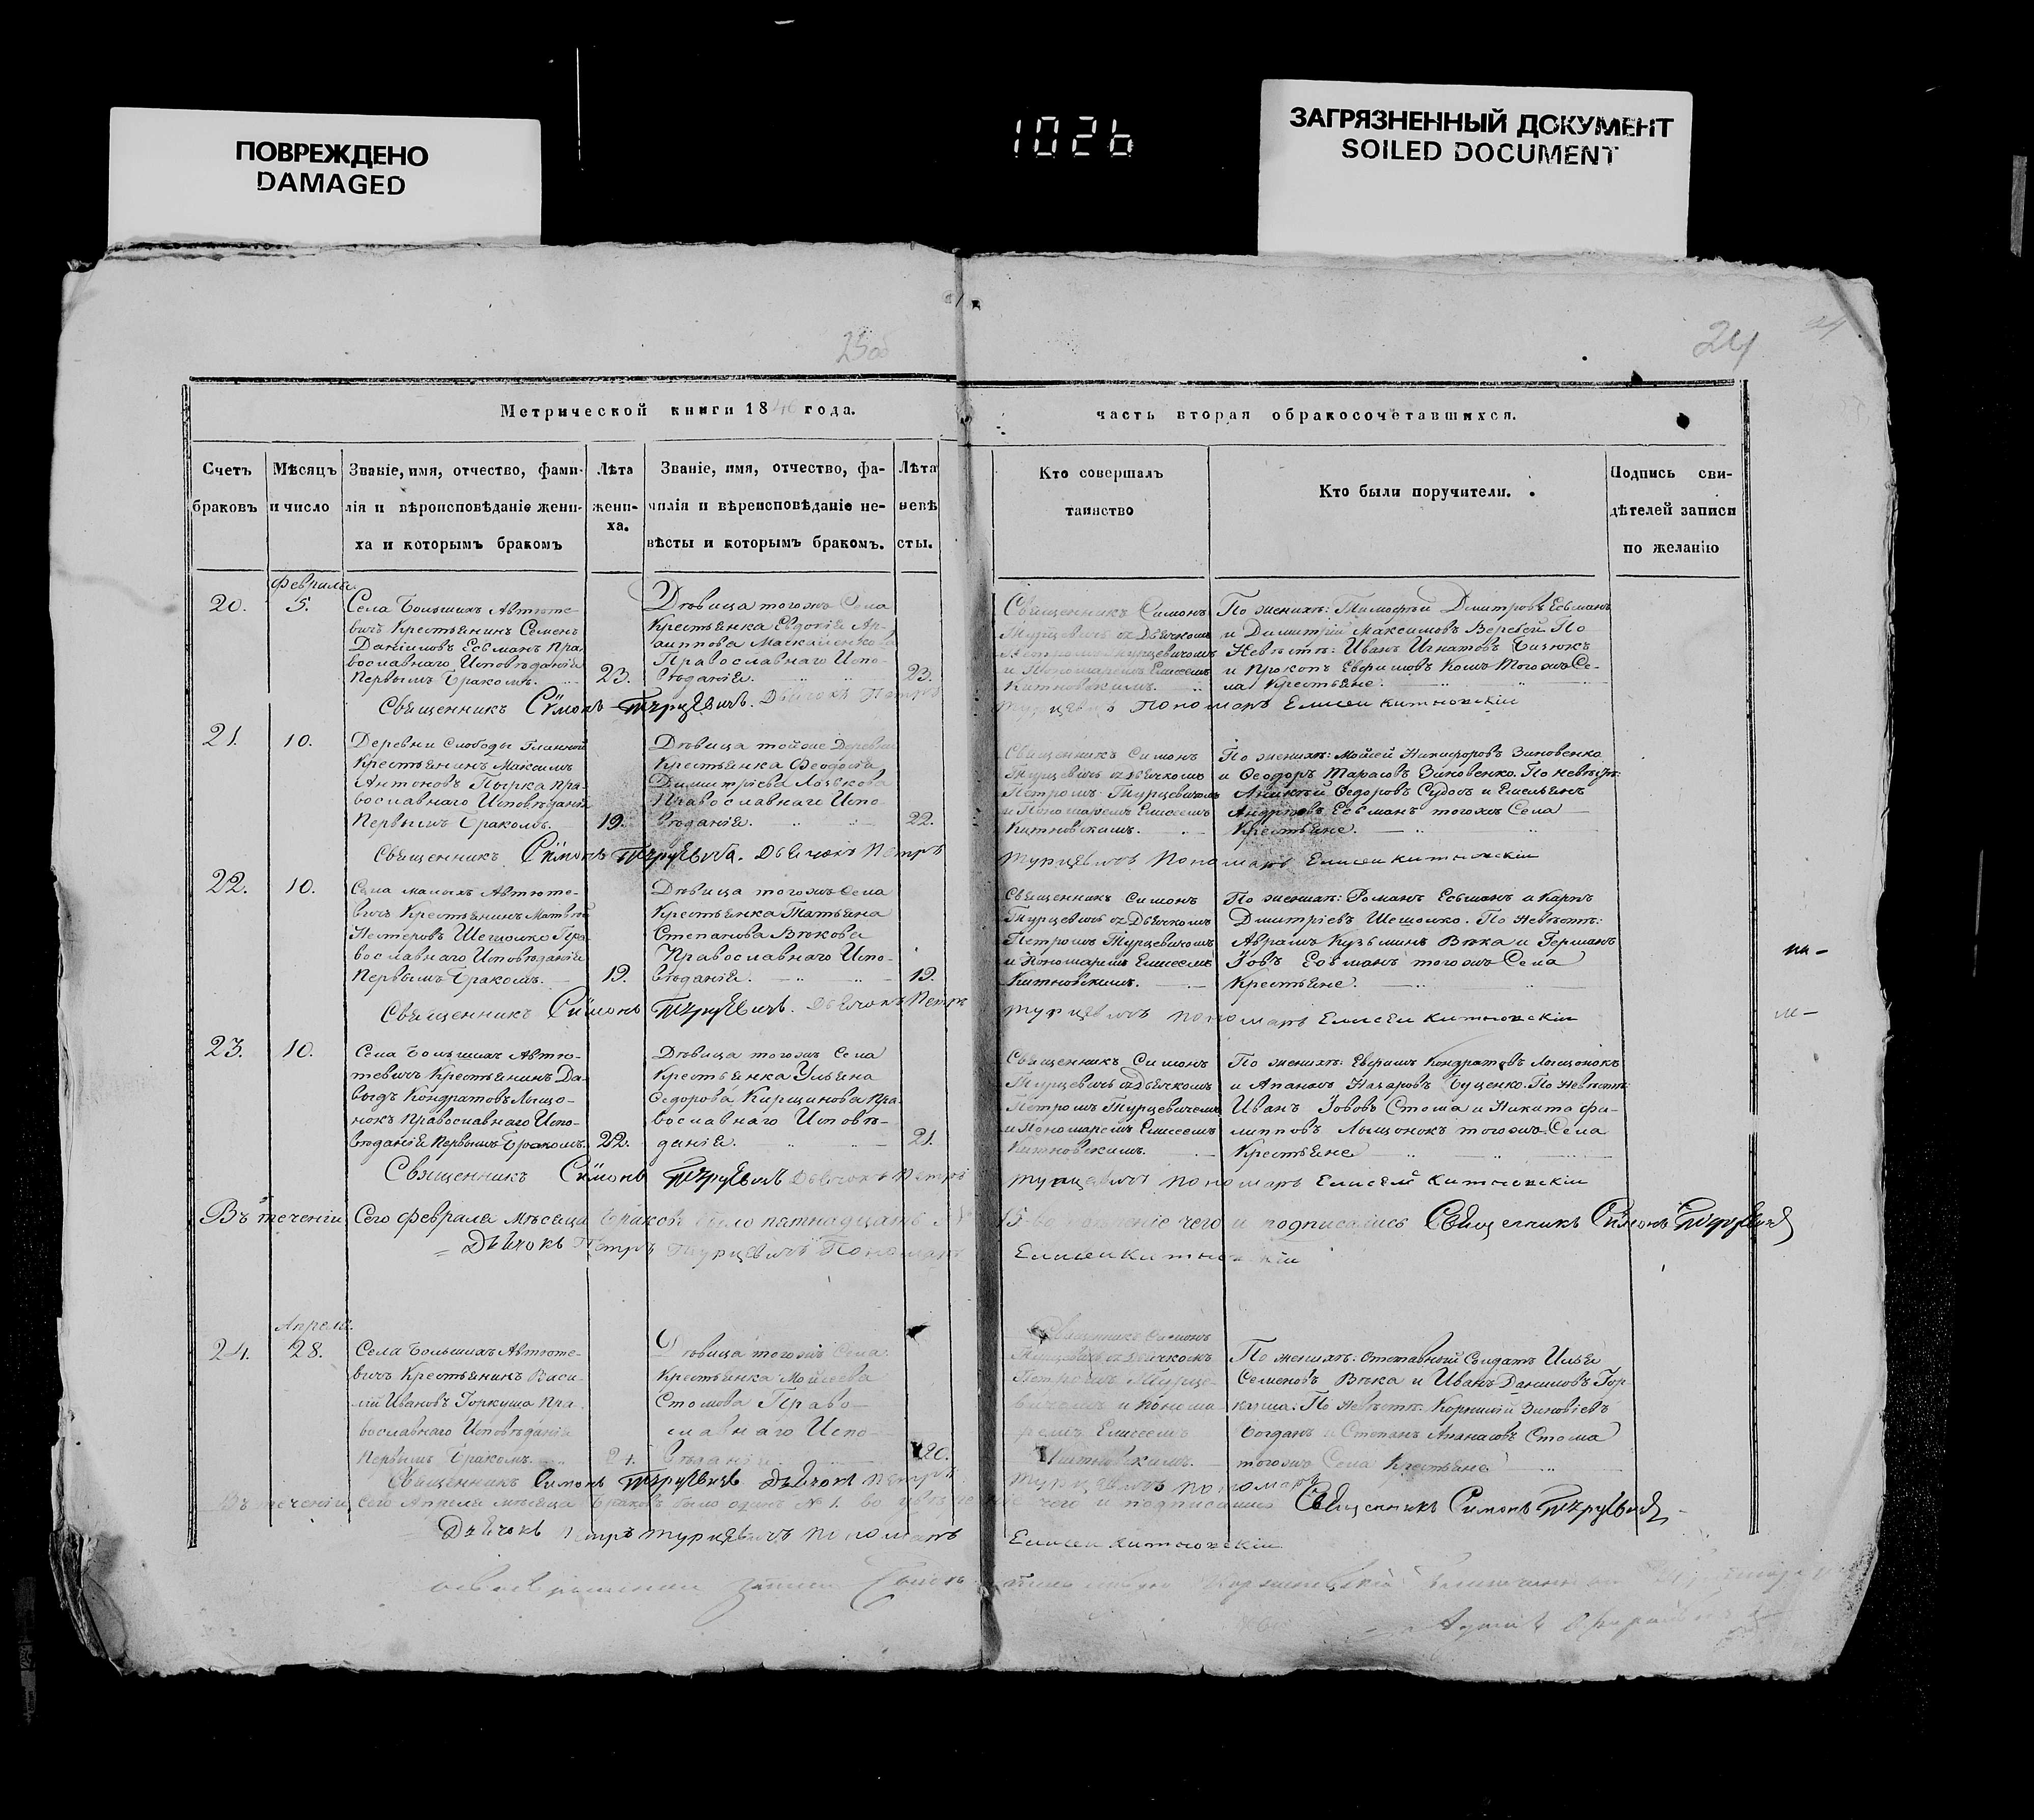 ПОВРЕЖДЕНО
DAMAGED
1026
ЗАГРЯЗНЕННЫЙ ДОКУМЕНТ
SOILED DOCUMENT
24
Метрической книги 1840 года.
часть вторая обракосочетавшихся.
Счетъ браковъ
Мѣсяцъ и число
Званіе, имя, отчество, фами-
лія и вѣроисповѣданіе жени-
ха и которымъ бракомъ
Лѣта
жени-
ха.
Званіе, имя, отчество, фа-
милія и вѣроисповѣданіе не-
вѣсты и которымъ бракомъ.
Лѣта
невѣ
сты.
Кто совершалъ
таинство
Кто были поручители.
Подпись сви-
дѣтелей записи
по желанію
20.
Февраля
5.
Села Большихъ Автюте-
вичъ Крестьянинъ Семенъ
Даніиловъ Есьманъ Пра-
вославнаго Исповѣданія
Первымъ Бракомъ.
23.
Дѣвица тогожъ Села
Крестьянка Евдокія
Православнаго Испо-
вѣданія.
23.
Священникъ Симонъ
Турцевичъ съ Дьячкомъ
Петромъ Турцевичомъ
и Пономаремъ Елисеемъ
Китновскимъ.
По женихѣ: Тимофей Дмитровъ Есьманъ
и Димитрій Максимовъ Веребей. По
Невѣстѣ: Иванъ Игнатовъ Бизюкъ
и Прокопъ Евфимовъ Тогожъ Се-
ла Крестьяне.
Священникъ Симонъ Турцевичъ. Дьячокъ Петръ
Турцевичъ Пономарь Елисей Китновскій
21.
10.
Деревни Слободы
Крестьянинъ Максимъ
Антоновъ Пырка Пра-
вославнаго Исповѣданія
Первымъ Бракомъ.
19.
Дѣвица тойже Деревни
Крестьянка Феодосія
Димитріева
Православнаго Испо-
вѣданія.
22.
Священникъ Симонъ
Турцевичъ съ Дьячкомъ
Петромъ Турцевичомъ
и Пономаремъ Елисеемъ
Китновскимъ.
По женихѣ: Мойсей Никифоровъ Зиновенко
и Феодоръ Тарасовъ Зиновенко. По невѣстѣ:
Федоровъ Судасъ и Емельянъ
Андреевъ Есьманъ тогожъ Села
Крестьяне.
Священникъ Симонъ Турцевичъ. Дьячокъ Петръ
Турцевичъ Пономарь Елисей Китновскій
22.
10.
Села малыхъ Автюте-
вичъ Крестьянинъ Матвѣй
Нестеровъ Шешолко Пра-
вославнаго Исповѣданія
Первымъ Бракомъ.
19.
Дѣвица тогожъ Села
Крестьянка Татьяна
Степанова Вѣкова
Православнаго Испо-
вѣданія.
19.
Священникъ Симонъ
Турцевичъ съ Дьячкомъ
Петромъ Турцевичомъ
и Пономаремъ Елисеемъ
Китновскимъ.
По женихѣ: Романъ Есьманъ и Карпъ
Дмитріевъ Шешолко. По Невѣстѣ:
Аврамъ Кузьминъ Вѣка и Германъ
Іовъ Есьманъ тогожъ Села
Крестьяне.
Священникъ Симонъ Турцевичъ. Дьячокъ Петръ
Турцевичъ Пономарь Елисей Китновскій
23.
10.
Села Большихъ Автю-
тевичъ Крестьянинъ Да-
выдъ Кондратовъ Лыщо-
нокъ Православнаго Испо-
вѣданія Первымъ Бракомъ.
22.
Дѣвица тогожъ Села
Крестьянка Ульяна
Федорова Кирщинова Пра-
вославнаго Исповѣ-
данія.
21.
Священникъ Симонъ
Турцевичъ съ Дьячкомъ
Петромъ Турцевичемъ
и Пономаремъ Елисеемъ
Китновскимъ.
По женихѣ: Евфимъ Кондратовъ Лыщонокъ
и Апанасъ Назаровъ Буценко. По Невѣстѣ:
Иванъ Іововъ Стома и Никита Фи-
липповъ Лыщонокъ тогожъ Села
Крестьяне
Священникъ Симонъ Турцевичъ Дьячокъ Петръ
Турцевичъ Пономарь Елисей Китновскій
Въ теченіи Сего Февраля Мѣсяца Браковъ было пятнадцать № 15 чего и подписались Священникъ Симонъ Турцевичъ
Дьячокъ Петръ Турцевичъ Пономарь Елисей Китновскій
24.
Апреля.
28.
Села Большихъ Автюте-
вичъ Крестьянинъ Васи-
лій Ивановъ Горкуша Пра-
вославнаго Исповѣданія
Первымъ Бракомъ.
21.
Дѣвица тогожъ Села
Крестьянка Мойсеева
Стомова Право-
славнаго Испо-
вѣданія
20.
Священникъ Симонъ
Турцевичъ съ Дьячкомъ
Петромъ Турце-
вичомъ и Понома-
ремъ Елисеемъ
Китновскимъ.
По женихѣ: отставной Солдатъ Илья
Семеновъ Вѣка и Иванъ Даниловъ Гор-
куша. По Невѣстѣ: Корнилій Зиновіевъ
Богданъ и Степанъ Апанасовъ Стома
тогожъ Села Крестьяне
Священникъ Симонъ Турцевичъ Дьячокъ Петръ
Турцевичъ Пономарь
Въ теченіи сего Апреля мѣсяца Браковъ было одинъ № 1. во чего и подписались Священникъ Симонъ Турцевичъ
Дьячокъ Петръ Турцевичъ Пономарь Елисей Китновскій